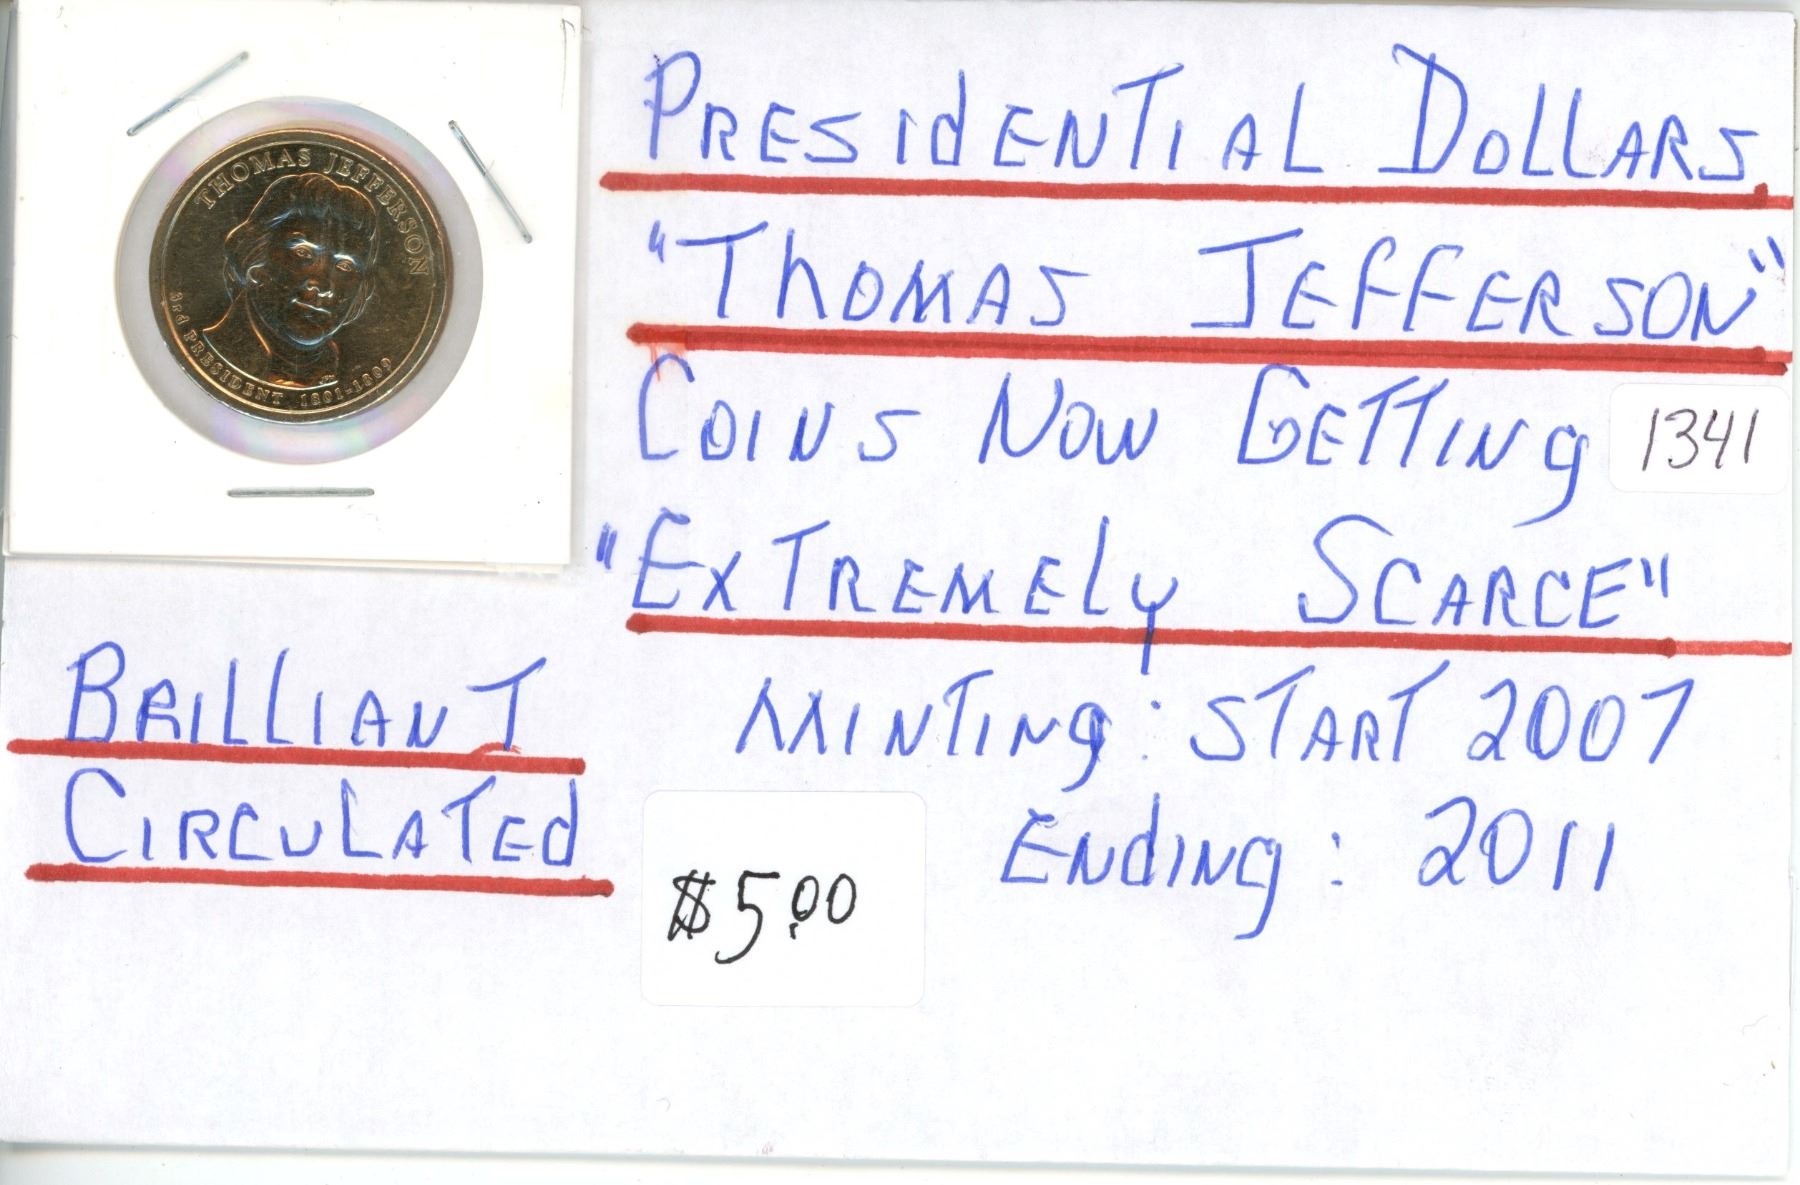 THOMAS JEFFERSON
3rd PRESIDENT 1801-1809
PRESIdENTIAL DOLLARS
"THOMAS JEFFERSON"
COINS NOW GETTING
1341
"EXTREMELy SCARCE"
BRILLIANT
CIRCULATEd
MINTINg: START 2007
ENdINg: 2011
$5.00